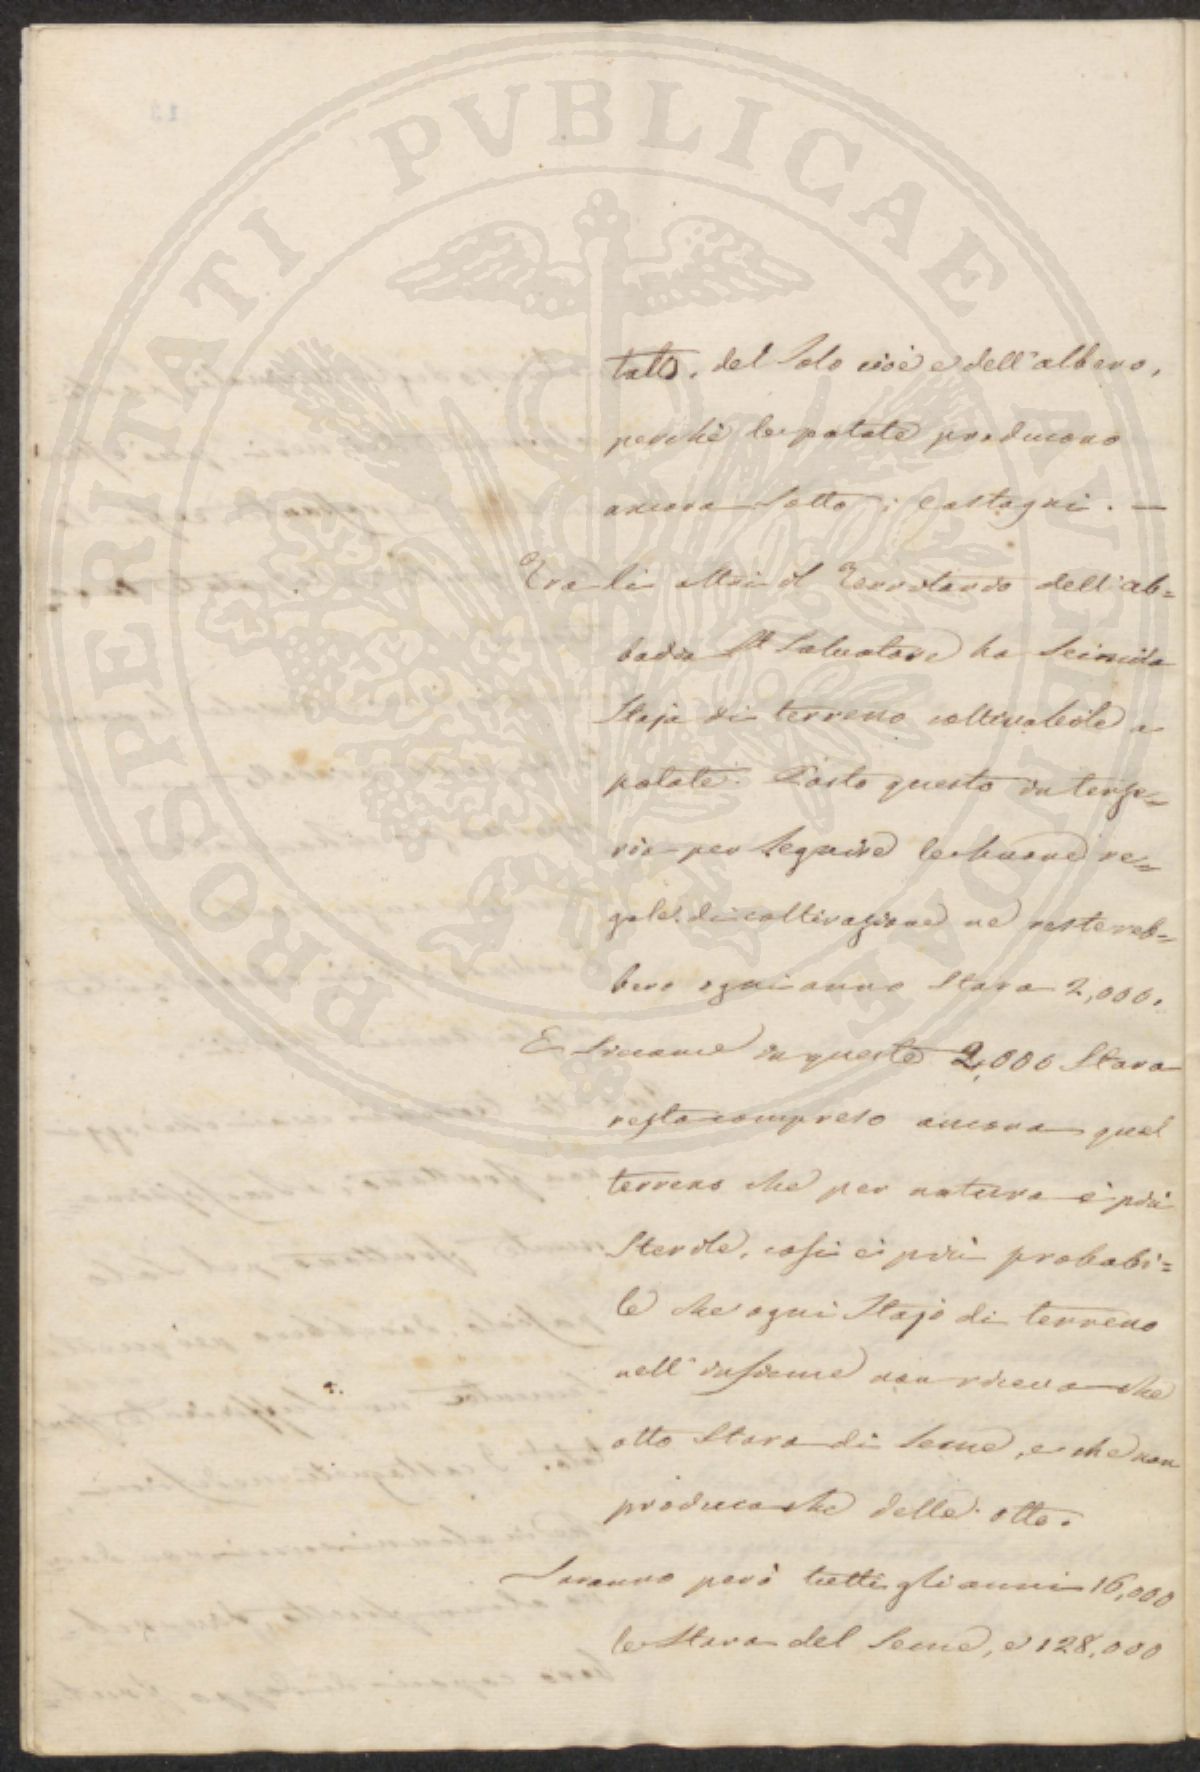 tutto, del Solo cioè e dell'albero,
perchè le patate producono
ancora sotto i castagni. —
Tra li altri il Territorio dell'Ab=
badia S. Salvatore ha Seimila
Staja di terreno coltivabile a
patate. Posto questo in terze=
ria per seguire le buone re=
gole di coltivazione ne restereb=
bero ogni anno Stara 2,000.
E siccome in queste 2,000 Stara
resta compreso ancora quel
terreno che per natura è più
Sterile, così è più probabi=
le che ogni Stajo di terreno
nell'insieme non riceva che
otto Stara di Seme, e che non
produca che delle otto.
Saranno però tutti gli anni 16,000
le Stara del Seme, e 128,000
PROSPERITATI PVBLICAE AVGENDAE